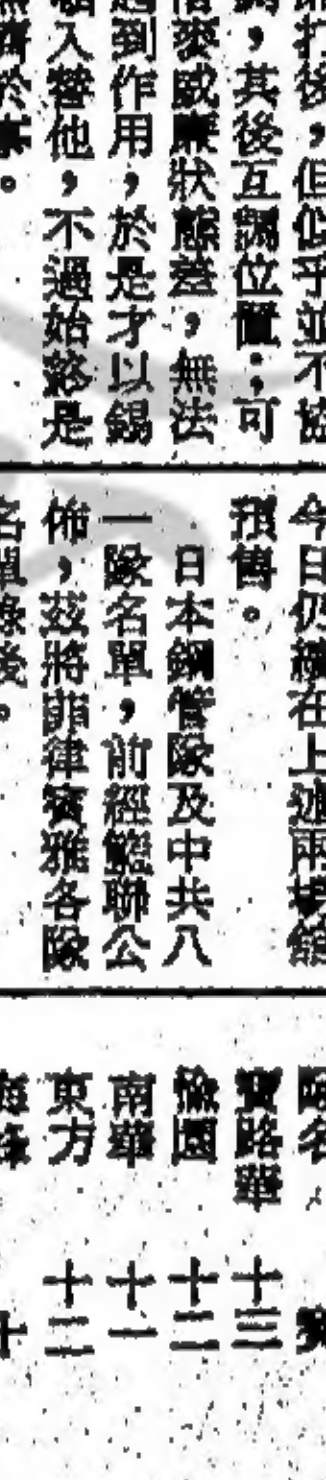 打後，但似乎並不協
，其後互調位置；可
惜麥威廉狀態差，無法
起到作用，於是才以錫
入替他，不過始終是
無濟於事。
今日仍續在上述兩場館
預售。
日本鋼管隊及中共八
一隊名單，前經籃聯公
佈，茲將菲律賓雅各隊
名單錄後。
隊名
寶路華 十三
愉園 十二
南華 十一
東方 十二